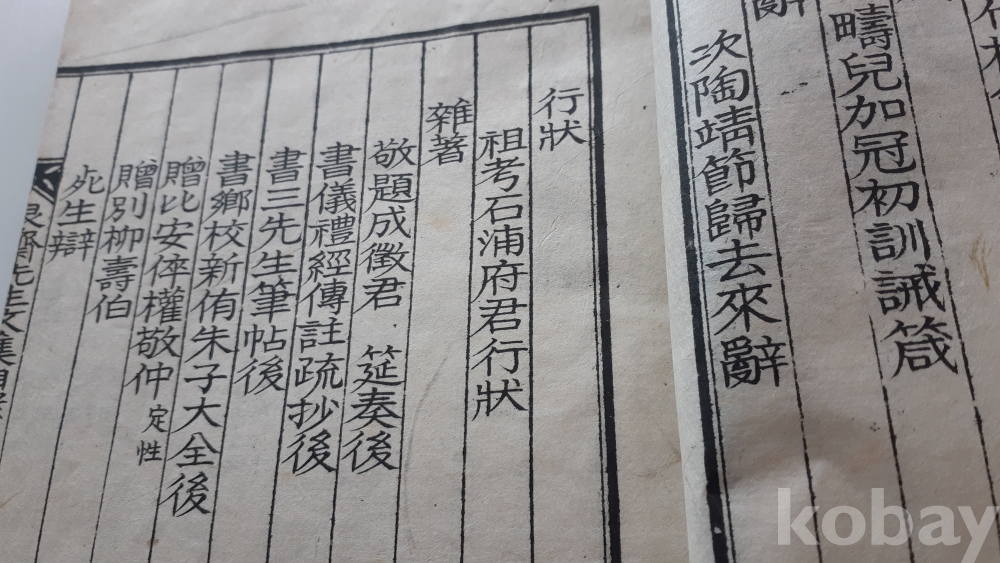 疇兒加冠初訓誡箴
次陶靖節歸去來辭
行狀
祖考石浦府君行狀
雜著
敬題成徵君 筵奏後
書儀禮經傳註疏抄後
書三先生筆帖後
書鄉校新侑朱子大全後
贈比安倅權敬仲 定性
贈別柳壽伯
死生辯
kobay